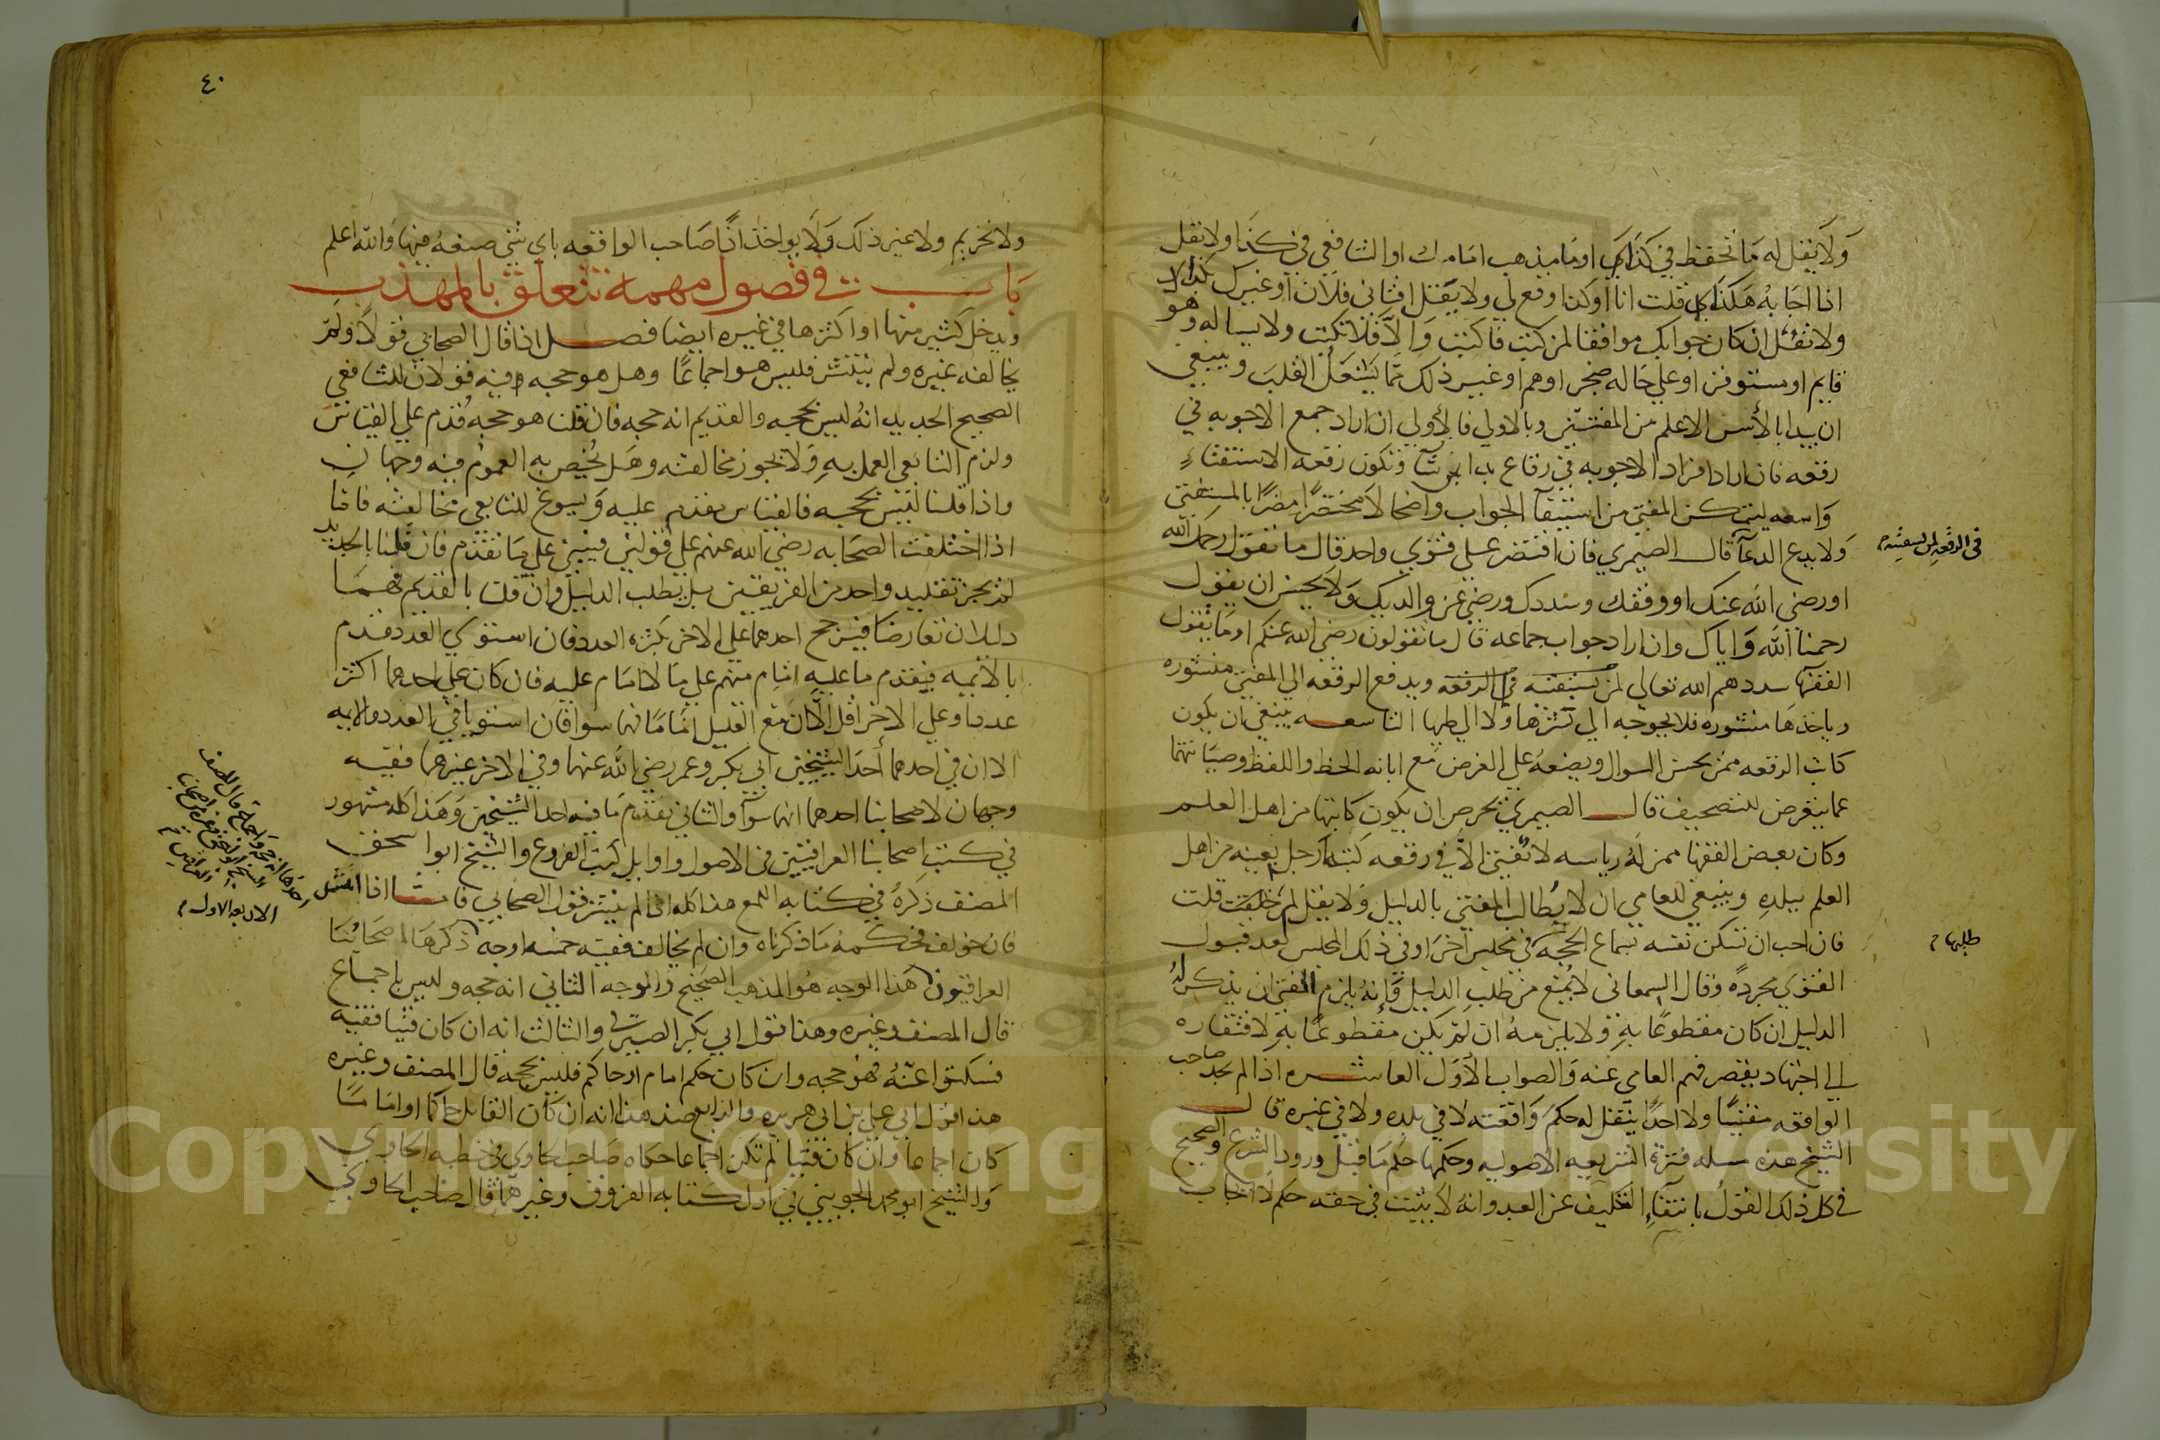 ولا يقل له ما تحفظ في كذا او ما مذهب امامك او الشافعي في كذا ولا يقل
اذا اجابه هكذا قلت انا او كذا وقع لي ولا يقل افتاني فلان او غيرك بكذا
ولا تقل ان كان جوابك موافقا لمن كتب فاكتب والا فلا تكتب ولا يساله وهو
قايم او مستوفز او علي حاله ضجر او هم او غير ذلك مما يشغل القلب وينبغي
ان يبدا بالأسن الاعلم من المفتين وبالاولي فالأولي ان اراد جمع الاجوبه في
رقعه فان اراد افراد الاجوبه في رقاع بدا بمن شا وتكون رقعه الاستفتاء
واسعه ليتمكن المفتي من استيفآ الجواب واضحا لا مختصرا مضرا بالمستفتي
ولا يدع الدعآ قال الصيمري فان اقتصر علي فتوي واحد قال ما تقول رحمك الله
او رضي الله عنك او وفقك وسددك ورضي عن والديك ولا يحسن ان يقول
رحمنا الله واياك وان اراد جواب جماعه قال ما تقولون رضي الله عنكم او ما يقول
الفقها سددهم الله تعالي لمن يستفته في الرقعه ويدفع الرقعه الي المفتي منشوره
وياخذها منشوره فلا يحوجه الي نشرها ولا الي طيها التاسعه ينبغي ان يكون
كاتب الرقعه ممن يحسن السوال ويضعه علي الغرض مع ابانه الخط واللفظ وصيانتهما
عما يتعرض للتصحيف قال الصيمري يحرص ان يكون كاتبها من اهل العلم
وكان بعض الفقها ممن له رياسه لا يفتي الا في رقعه كتبها رجل بعينه من اهل
العلم ببلده وينبغي للعامي ان لا يطالب المفتي بالدليل ولا يقل لم قلت
فان احب ان تسكن نفسه بسماع الحجه في مجلس آخر او في ذلك المجلس بعد قبول
الفتوي مجردة وقال السمعاني لا يمنع من طلب الدليل وإنه يلزم المفتي ان يذكر له
الدليل ان كان مقطوعا به ولا يلزمه ان لم يكن مقطوعا به لافتقاره
الي اجتهاد يقصر فهم العامي عنه والصواب الأول العاشره اذا لم يجد صاحب
الواقعه مفتيا ولا احدا ينقل له حكم واقعته لا في بلده ولا في غيره قال
الشيخ هذه مسله فترة الشريعه الاصوليه وحكمها حكم ما قبل ورود الشرع والصحيح
في كل ذلك القول بانتفآء التكليف عن العبد وانه لا يثبت في حقه حكم لا ايجاب
في الرقعه لمن يستفته
طلبها
٤٠
ولا تحريم ولا غير ذلك ولا يواخذ اذا صاحب الواقعه باي شي صنعه فيها والله اعلم
باب في فصول مهمه تتعلق بالمهذب
ويدخل كثير منها او اكثرها في غيره ايضا فصل اذا قال الصحابي قولا ولم
يخالفه غيره ولم ينتشر فليس هو اجماعا وهل هو حجه فيه قولان للشافعي
الصحيح الجديد انه ليس بحجه والقديم انه حجه فان قلنا هو حجه قدم علي القياس
ولزم التابعي العمل به ولا يجوز مخالفته وهل يخص به العموم فيه وجهان
واذا قلنا ليس بحجه فالقياس مقدم عليه ويسوغ للتابعي مخالفته فاما
اذا اختلفت الصحابه رضي الله عنهم علي قولين فيبني علي ما تقدم فان قلنا بالجديد
لم يجز تقليد واحد من الفريقين بل يطلب الدليل وان قلنا بالقديم فهما
دليلان تعارضا فيرجح احدهما علي الاخر بكثرة العدد فان استوي العدد قدم
بالائميه فيقدم ما عليه امام منهم علي ما لا امام عليه فان كان علي احدهما اكثر
عددا وعلي الاخر اقل الا ان مع القليل اماما فهما سوا فان استويا في العدد والايمه
الا ان في احدهما أحد الشيخين ابي بكر وعمر رضي الله عنهما وفي الاخر غيرهما ففيه
وجهان لاصحابنا احدهما انهما سوآ والثاني يقدم ما فيه احد الشيخين وهذا كله مشهور
في كتب اصحابنا العراقيين في الاصول واوايل كتب الفروع والشيخ ابو اسحق
المصنف ذكره في كتابه اللمع هذا كله اذا لم ينتشر قول الصحابي فاما اذا انتشر
فان خولف فحكمه ما ذكرناه وان لم يخالف ففيه خمسه اوجه ذكرها اصحابنا
العراقيون هذا الوجه هو المذهب الصحيح والوجه الثاني انه حجه وليس باجماع
قال المصنف وغيره وهذا قول ابي بكر الصيرفي والثالث انه ان كان فتيا فقيه
فسكتوا عنه فهو حجه وان كان حكم امام او حاكم فليس بحجه قال المصنف وغيره
هذا قول ابي علي بن ابي هريره والرابع ضد هذا انه ان كان القايل حاكما او اماما
كان اجماعا وان كان فتيا لم تكن اجماعا حكاه صاحب الحاوي في خطبه الحاوي
والشيخ ابو محمد الجويني في اول كتابه الفروق وغيرهما قال صاحب الحاوي
احدها انه حجه واجماع قال المصنف
الشيخ ابو اسحق وغيره من اصحابنا
الاربعه الاول
Copyright © King Saud University